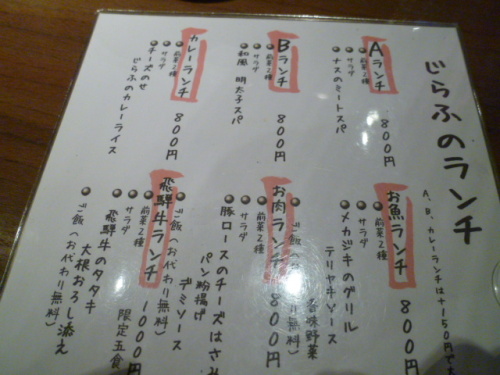 じらふのランチ
A、B、カレーランチは+150円で
Aランチ 800円
前菜2種
サラダ
ナスのミートスパ
Bランチ 800円
前菜2種
サラダ
和風 明太子スパ
カレーランチ 800円
前菜2種
サラダ
チーズのせ
じらふのカレーライス
お魚ランチ 800円
前菜2種
サラダ
メカジキのグリル
テリヤキソース
香味野菜
ご飯(お代わり無料)
お肉ランチ 800円
前菜2種
サラダ
豚ロースのチーズはさみ
パン粉揚げ
デミソース
ご飯(お代わり無料)
飛騨牛ランチ 1000円
前菜2種
限定五食
サラダ
飛騨牛のタタキ
大根おろし添え
ご飯(お代わり無料)